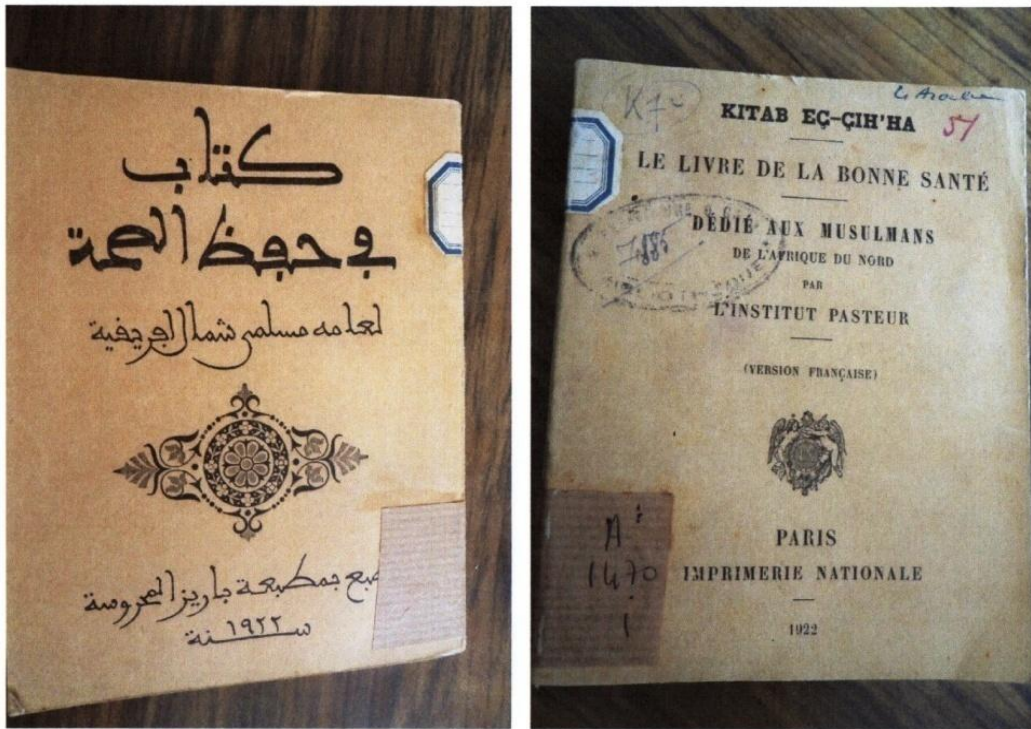 كتاب
في حفظ الصحة
لعامة مسلمي شمال افريفية
طبع بمطبعة باريز المحروسة
سنة ١٩٢٢
K7
51
KITAB EÇ-ÇIH'HA
LE LIVRE DE LA BONNE SANTÉ
DÉDIÉ AUX MUSULMANS
DE L'AFRIQUE DU NORD
PAR
L'INSTITUT PASTEUR
(VERSION FRANÇAISE)
7885
PARIS
IMPRIMERIE NATIONALE
1922
A
1470
1